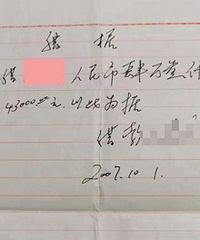 借 据
借 人民币肆万叁仟
43000元. 以此为据
借款
2007.10 1.